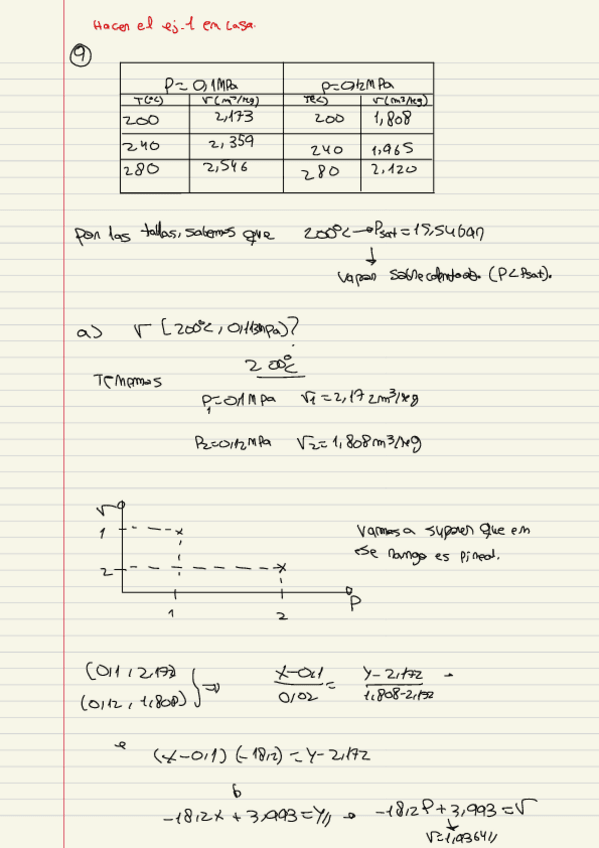 Hacer el ej.1 en casa.
9
P=0,1MPa P=0,12MPa
T(ºC) v(m³/kg) T(ºC) v(m³/kg)
200 2,173 200 1,808
240 2,359 240 1,965
280 2,546 280 2,120
Por las tablas, sabemos que 200ºC → Psat = 15,54bar
↓
vapor sobrecalentado. (P<Psat).
a) v [200ºC, 0,113MPa)?
200ºC
Tenemos
P₁=0,1MPa v₁=2,172m³/kg
P₂=0,12MPa v₂=1,808m³/kg
v
1
2
1 2 P
Vamos a suponer que en
ese rango es lineal.
(0,1, 2,172)
(0,12, 1,808) } ⇒ x-0,1 / 0,02 = y-2,172 / 1,808-2,172 →
(x-0,1)(-18,2)=y-2,172
-18,2x+3,993=y// → -18,2P+3,993=v
v=1,9364//